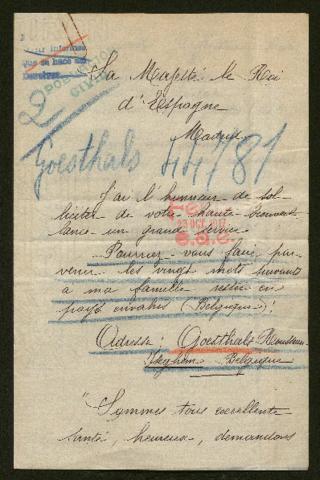 que se hace con
POBLACION
CIVIL
2
Sa Majesté le Roi
d'Espagne
Madrid
Goesthals 44781
J'ai l'honneur de sol-
liciter de votre haute bienveil-
lance un grand service
23 OCT. 1917
Pourriez-vous faire par-
venir les vingt mots suivants
à ma famille restée en
pays envahis (Belgique):
Adresse: Goesthals
Iseghem Belgique
"Sommes tous excellente
santé, heureux, demandons